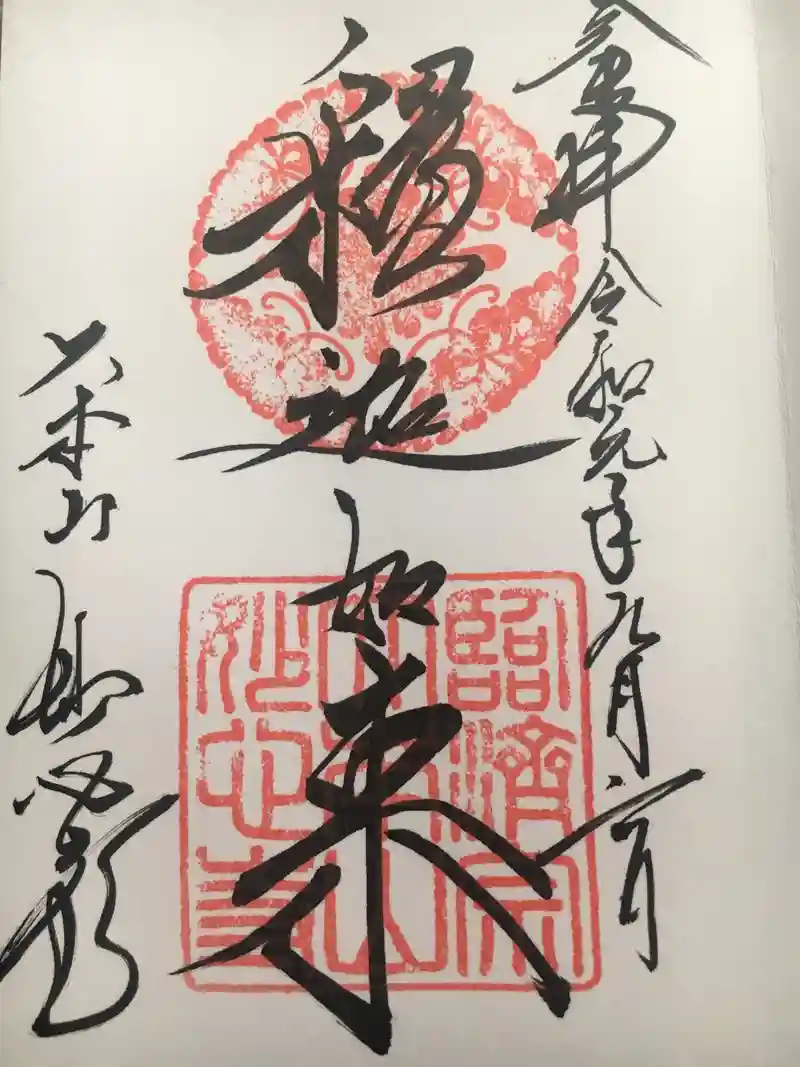 奉拝 令和元年九月 日
釋迦如来
大本山 妙心寺
臨濟宗
大本山
妙心寺